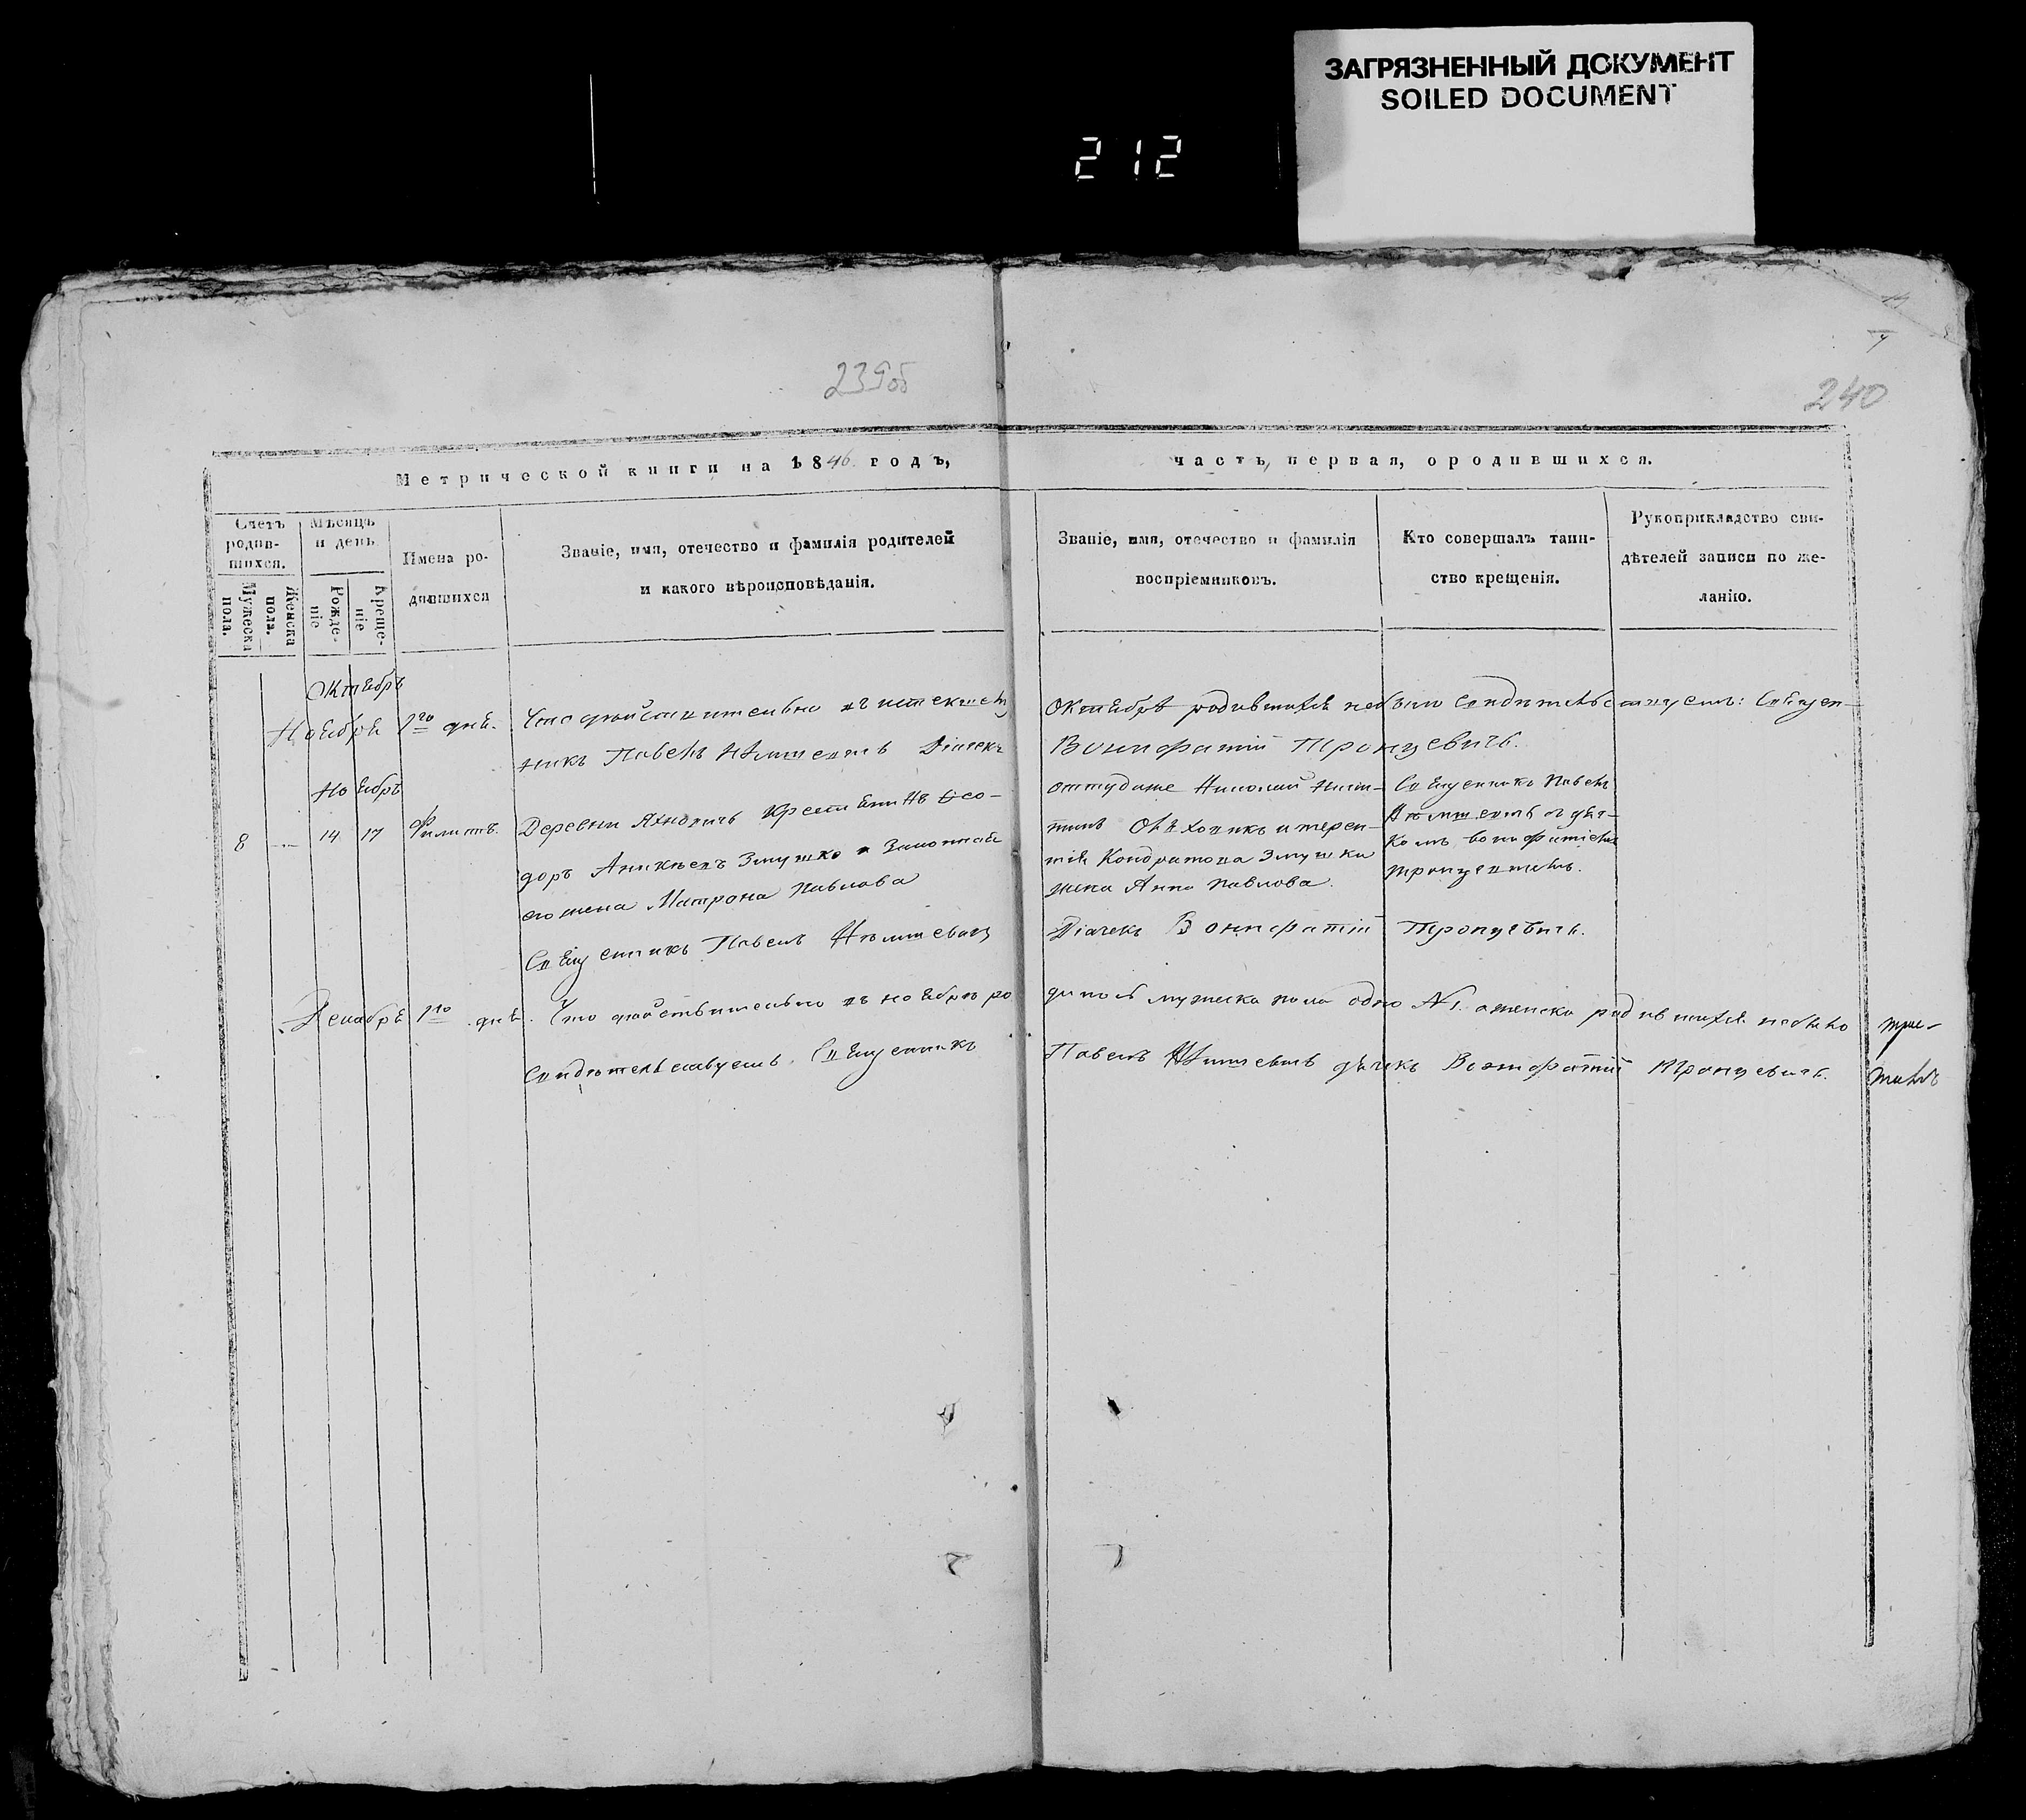 ЗАГРЯЗНЕННЫЙ ДОКУМЕНТ
SOILED DOCUMENT
212
239об
240
Метрической книги на 1846 годъ,
часть, первая, ородившихся.
Счетъ родив-шихся.
Мужеска пола.
Женска пола.
Мѣсяцъ и день
Рожде-ніе
Креще-ніе
Имена ро-
дившихся
Званіе, имя, отечество и фамилія родителей
и какого вѣроисповѣданія.
Званіе, имя, отечество и фамилія
воспріемниковъ.
Кто совершалъ таин-
ство крещенія.
Рукоприкладство сви-
дѣтелей записи по же-
ланію.
Октябрь
Ноября 1го дня. Что дѣйствительно въ истекшем
Октябрѣ родившихся небыло свидѣтельствуемъ: Священ-
никъ Павелъ Діачекъ
Вонифатій Тронцевичь.
Ноябрь
8 14 17 Филипъ.
Деревни Крестьянинъ Ѳео-
доръ Змушко и Законная
его жена Матрона Павлова
оттудаже Николай
и терен-
тія Кондратова Змушки
жена Анна Павлова.
Священникъ Павелъ
съ дяч-
комъ вонифатіемъ
тронцевичемъ.
Священникъ Павелъ
Діачекъ Вонифатій Тронцевичь.
Декабря 1го дня. Что дѣйствительно въ ноябрѣ ро
дилось мужеска пола одно №1. а женска родившихся небыло
Свидѣтельствуемъ. Священникъ
Павелъ дячекъ Вонифатій Тронцевичь.